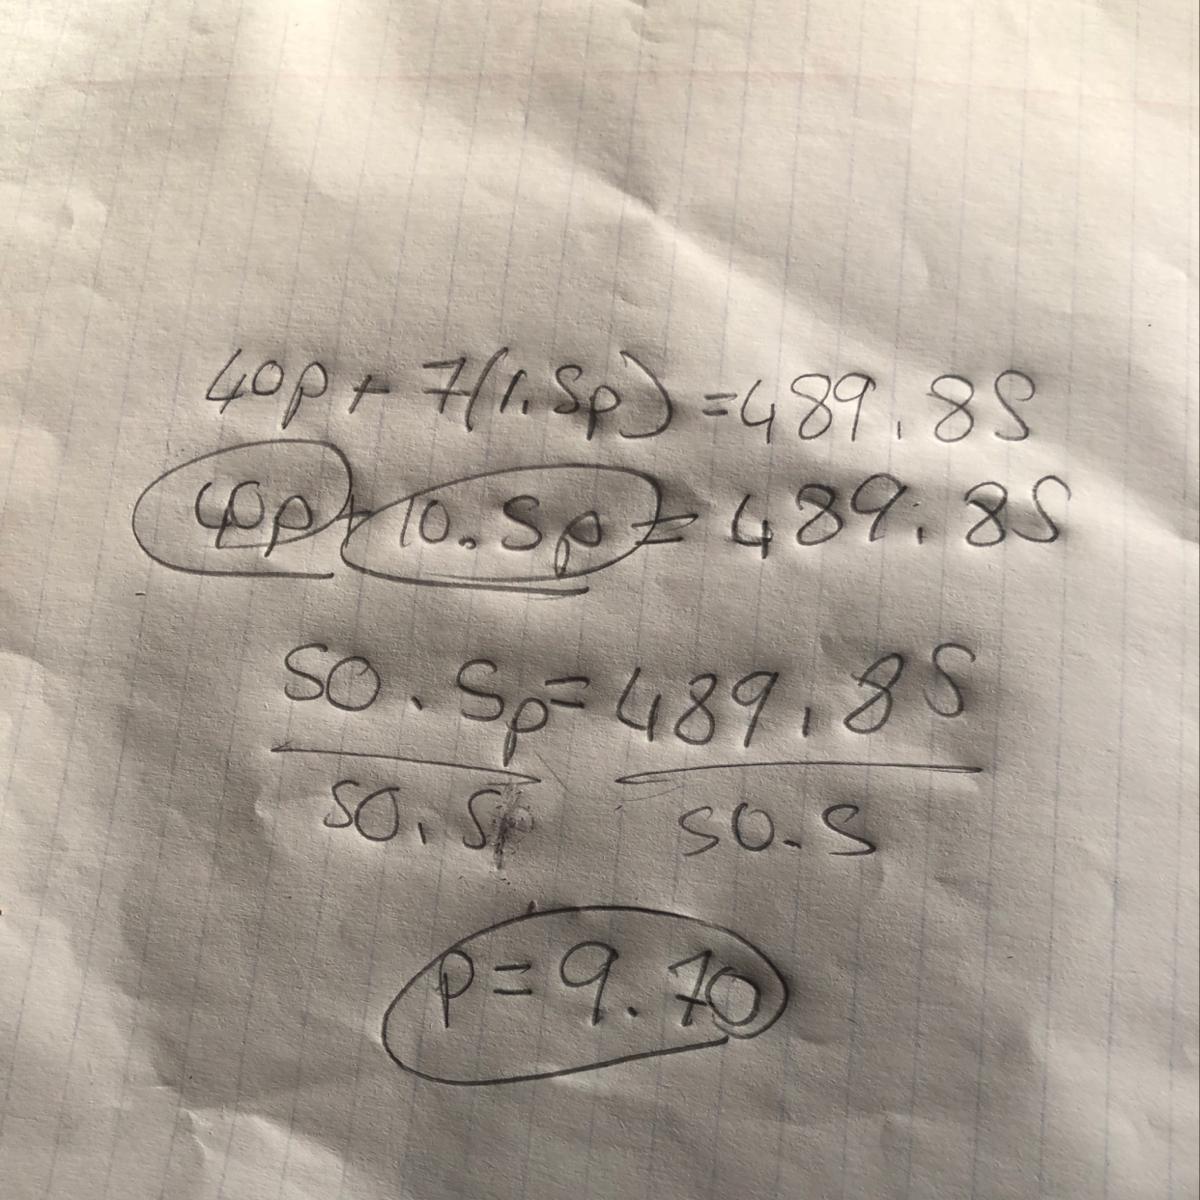 40p + 7(1.5p) = 489.85
40p + 10.5p = 489.85
50.5p = 489.85
50.5 50.5
p = 9.70